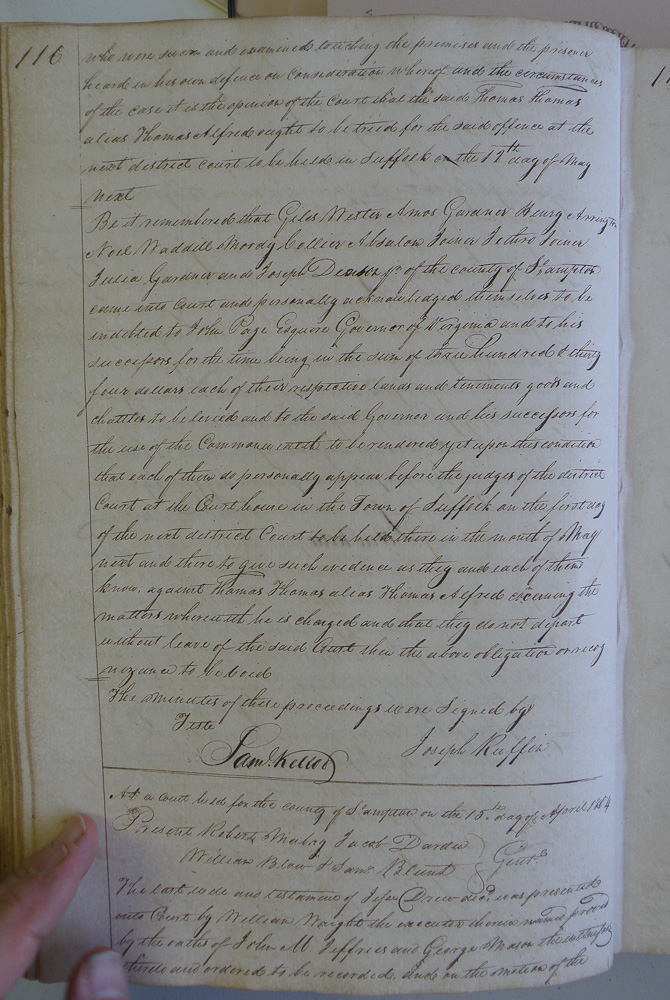 116
who were sworn and examined touching the premises and the prisoner
heard in his own defence on Consideration whereof and the circumstances
of the case it is the opinion of the Court that the said Thomas Thomas
alias Thomas Alfred ought to be tried for the said offence at the
next district court to be held in Suffolk on the 12th day of May
next
Be it remembered that Giles Wester Amos Gardner Henry Arrington
Noel Waddill Moody Collier Absalom Joiner Jethro Joiner
Julia Gardner and Joseph Denson jr of the county of S.ampton
came into Court and personally acknowledged themselves to be
indebted to John Page Esquire Governor of Virginia and to his
successors for the time being in the sum of three hundred & thirty
four dollars each of their respective lands and teniments goods and
chattles to be levied and to the said Governor and his successors for
the use of the Commonwealth to be rendered yet upon this condition
that each of them do personally appear before the judges of the district
Court at the Courthouse in the Town of Suffolk on the first day
of the next district Court to be held there in the month of May
next and there to give such evidence as they and each of them
know against Thomas Thomas alias Thomas Alfred the
matters wherewith he is charged and that they do not depart
without leave of the said Court then the above obligation or recog
nizance to be void
The minutes of these proceedings were Signed by
Teste
Joseph Ruffin
Saml. Kello
At a Court held for the county of S.ampton on the 15 day of April 1804
Present Robert Mabry Jacob Darden
William Blow & Saml Blunt
Gent.
The last will and testament of Jesse Drew decd. was presented
into Court by William Wright the executor therein named proved
by the oaths of John M Jeffries and George Mason the witnesses
thereto and ordered to be recorded and on the motion of the